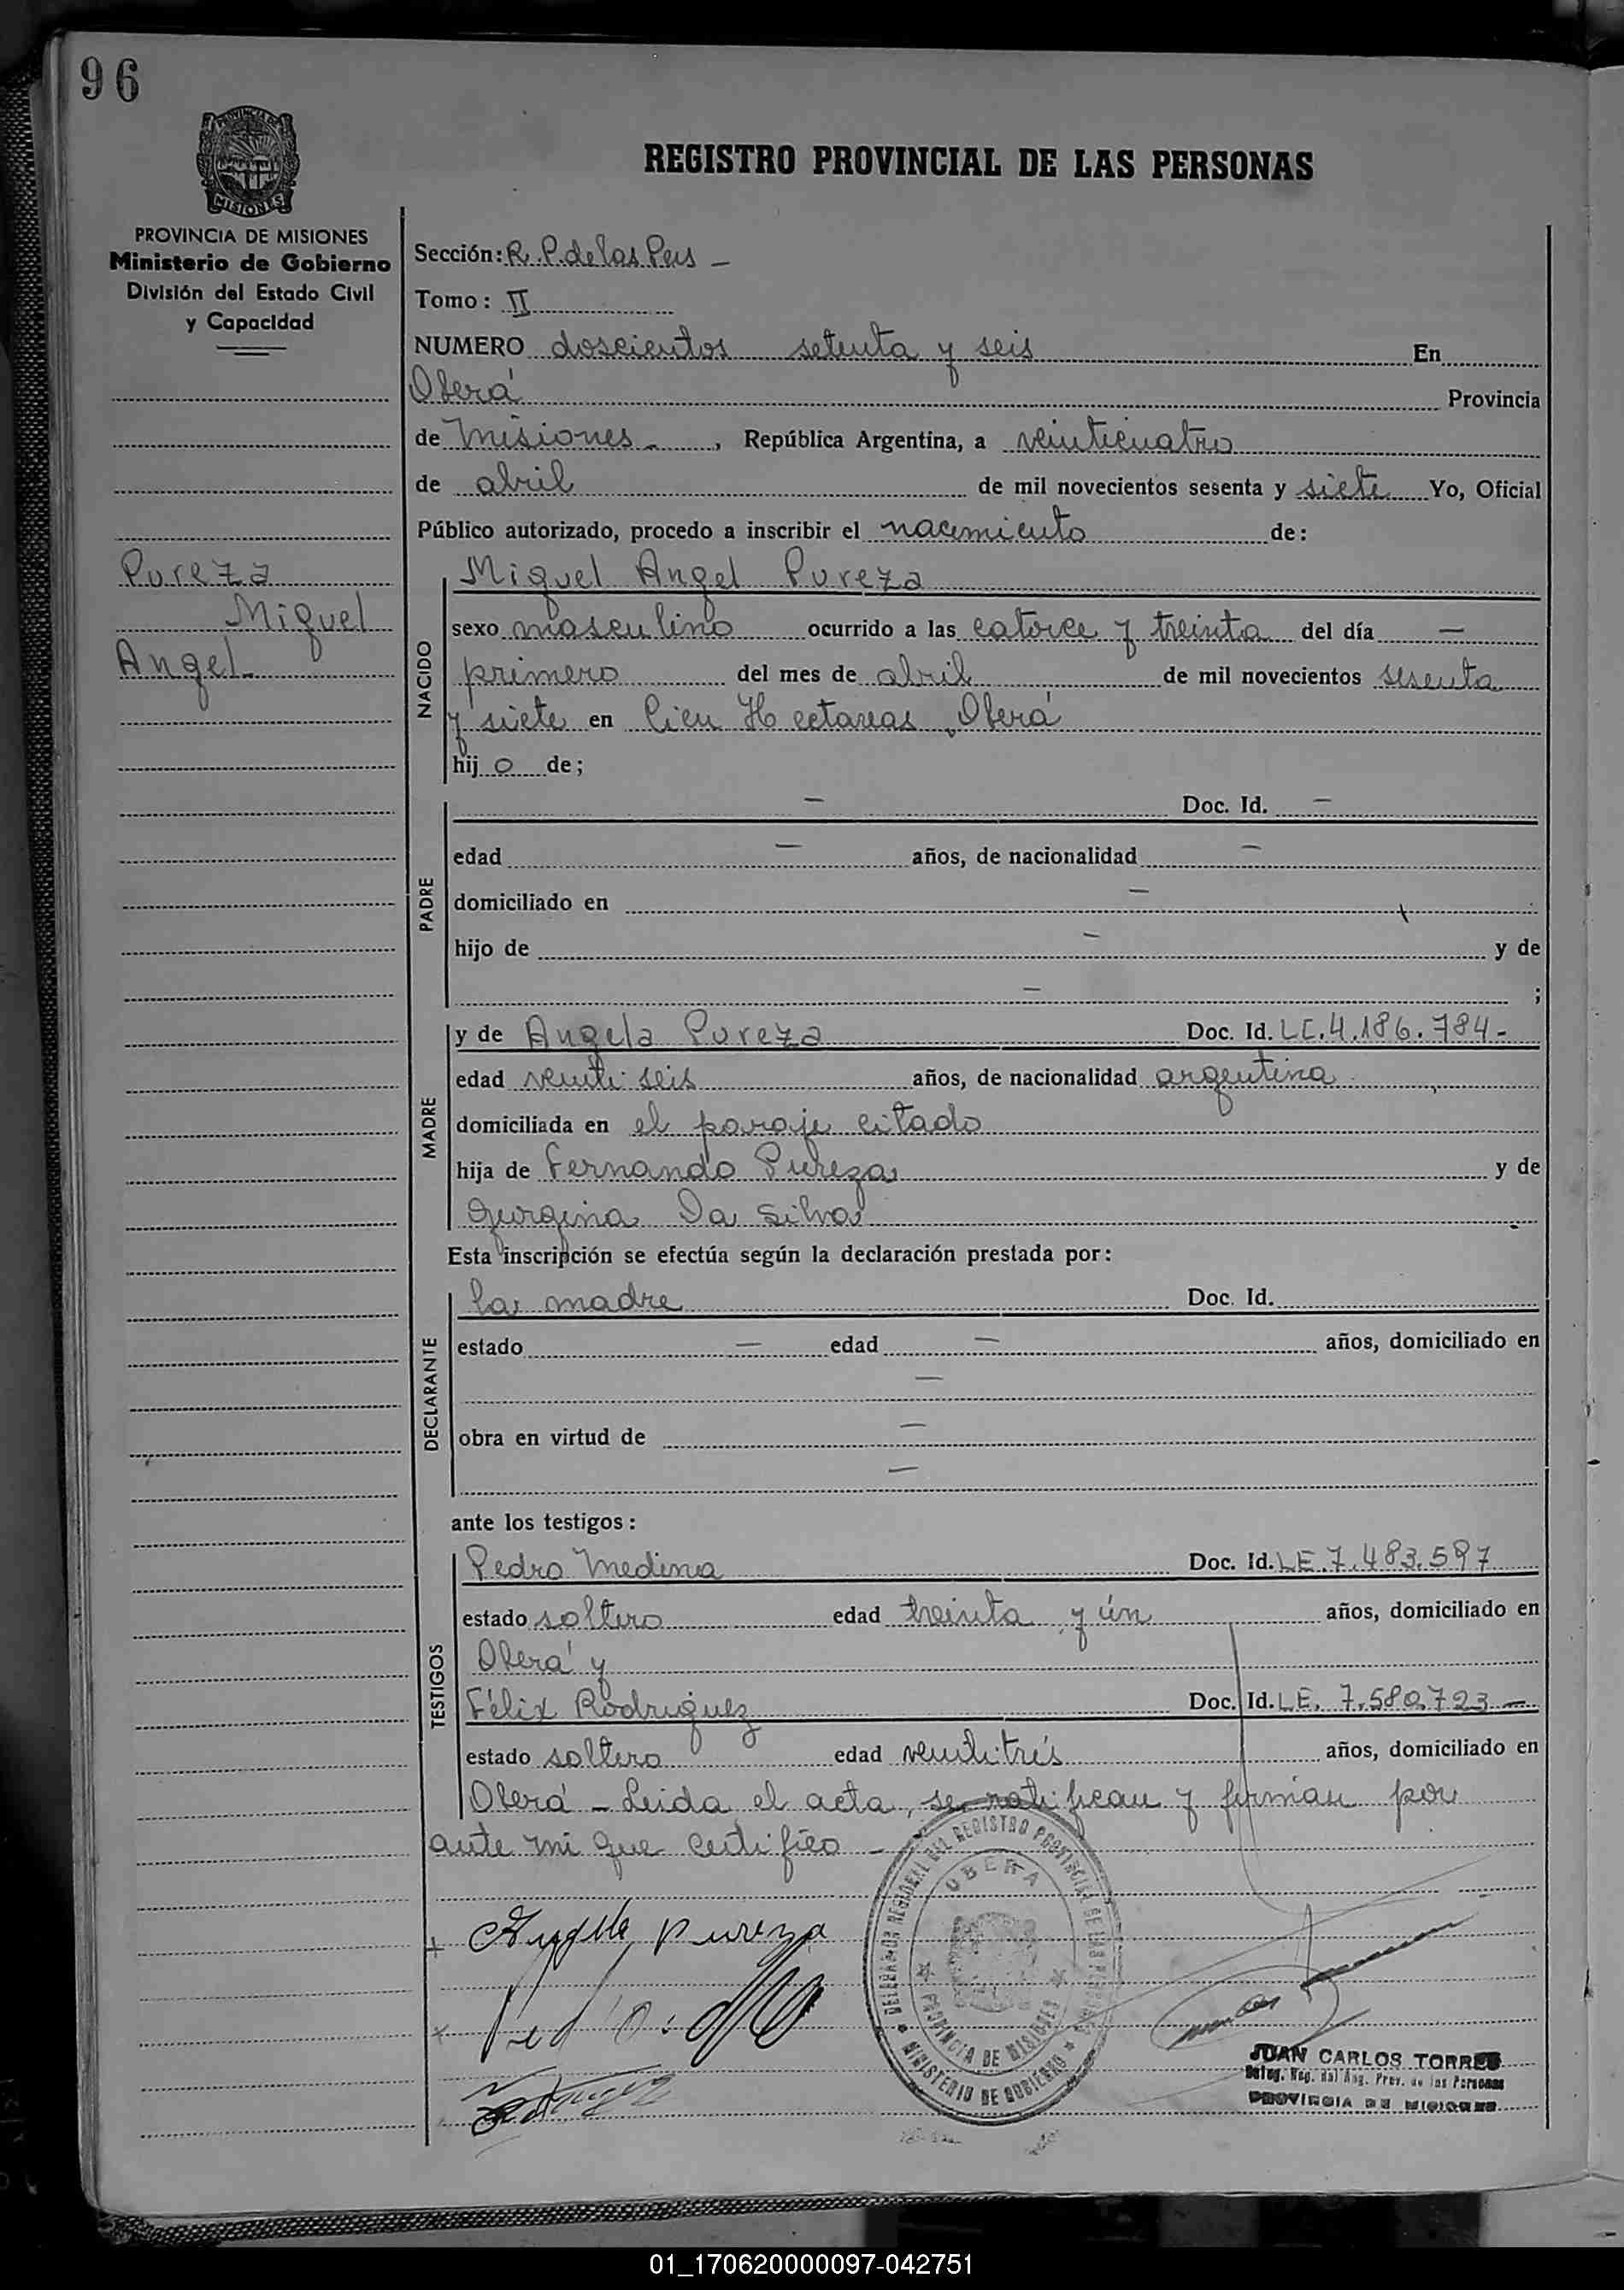 96
PROVINCIA DE
MISIONES
REGISTRO PROVINCIAL DE LAS PERSONAS
PROVINCIA DE MISIONES
Ministerio de Gobierno
División del Estado Civil
y Capacidad
Sección: R. P. de las Pers -
Tomo: II
NUMERO doscientos setenta y seis En
Oberá Provincia
de Misiones - , República Argentina, a veinticuatro
de abril de mil novecientos sesenta y siete Yo, Oficial
Público autorizado, procedo a inscribir el nacimiento de:
Pureza
Miguel
Angel -
NACIDO
Miguel Angel Pureza
sexo masculino ocurrido a las catorce y treinta del día —
primero del mes de abril de mil novecientos sesenta
y siete en Cien Hectareas, Oberá
hij o de;
PADRE
— Doc. Id. —
edad — años, de nacionalidad —
domiciliado en —
hijo de — y de
— ;
MADRE
y de Angela Pureza Doc. Id. LC. 4.186.784 -
edad veinti seis años, de nacionalidad argentina
domiciliada en el paraje citado
hija de Fernando Pureza y de
Gurgina Da Silva
Esta inscripción se efectúa según la declaración prestada por:
DECLARANTE
la madre Doc. Id.
estado — edad — años, domiciliado en
—
obra en virtud de —
—
ante los testigos:
TESTIGOS
Pedro Medina Doc. Id. LE. 7.483.597
estado soltero edad treinta y ún años, domiciliado en
Oberá y
Félix Rodriguez Doc. Id. LE. 7.580.723 —
estado soltero edad veinti trés años, domiciliado en
Oberá - Leida el acta, se ratifican y firman por
ante mi que certifico -
REGISTRO PROVINCIAL DE LAS PERSONAS
OBERA
PROVINCIA DE MISIONES
MINISTERIO DE GOBIERNO
Angela Pureza
JUAN CARLOS TORRES
Deleg. Reg. del Reg. Prov. de las Personas
PROVINCIA DE MISIONES
01_170620000097-042751